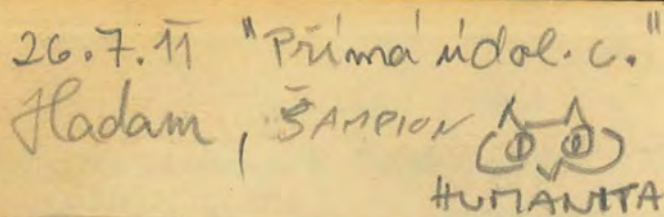 26.7.11 "Přímá údol. c."
Hadam, ŠAMPION
HUMANITA